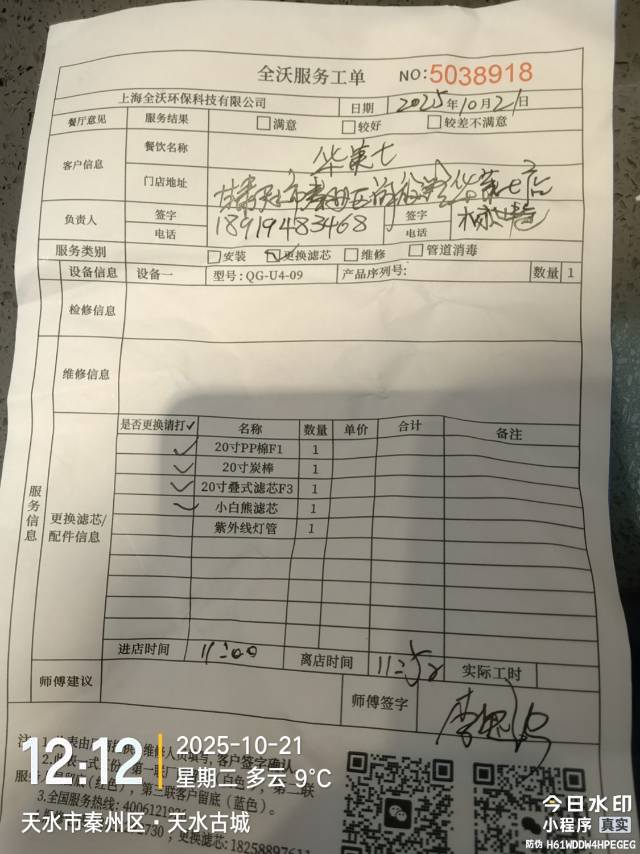 全沃服务工单 NO:5038918
上海全沃环保科技有限公司 日期 2025年10月21日
餐厅意见 服务结果 满意 较好 较差不满意
客户信息 餐饮名称 华莱士
门店地址
负责人 签字 签字
电话 18919483468 电话
服务类别 安装 更换滤芯 维修 管道消毒
设备信息 设备一 型号:QG-U4-09 产品序列号: 数量 1
检修信息
维修信息
服务信息
更换滤芯/配件信息
是否更换请打✓ 名称 数量 单价 合计 备注
✓ 20寸PP棉F1 1
✓ 20寸炭棒 1
✓ 20寸叠式滤芯F3 1
✓ 小白熊滤芯 1
紫外线灯管 1
进店时间 11:00 离店时间 11:52 实际工时
师傅建议 师傅签字
维修人员填写,客户签字确认
3.全国服务热线:4006121
18258897611
12.12
2025-10-21
星期二 多云 9℃
天水市秦州区·天水古城
今日水印
小程序 真实
防伪 H61WDDW4HPEGEG